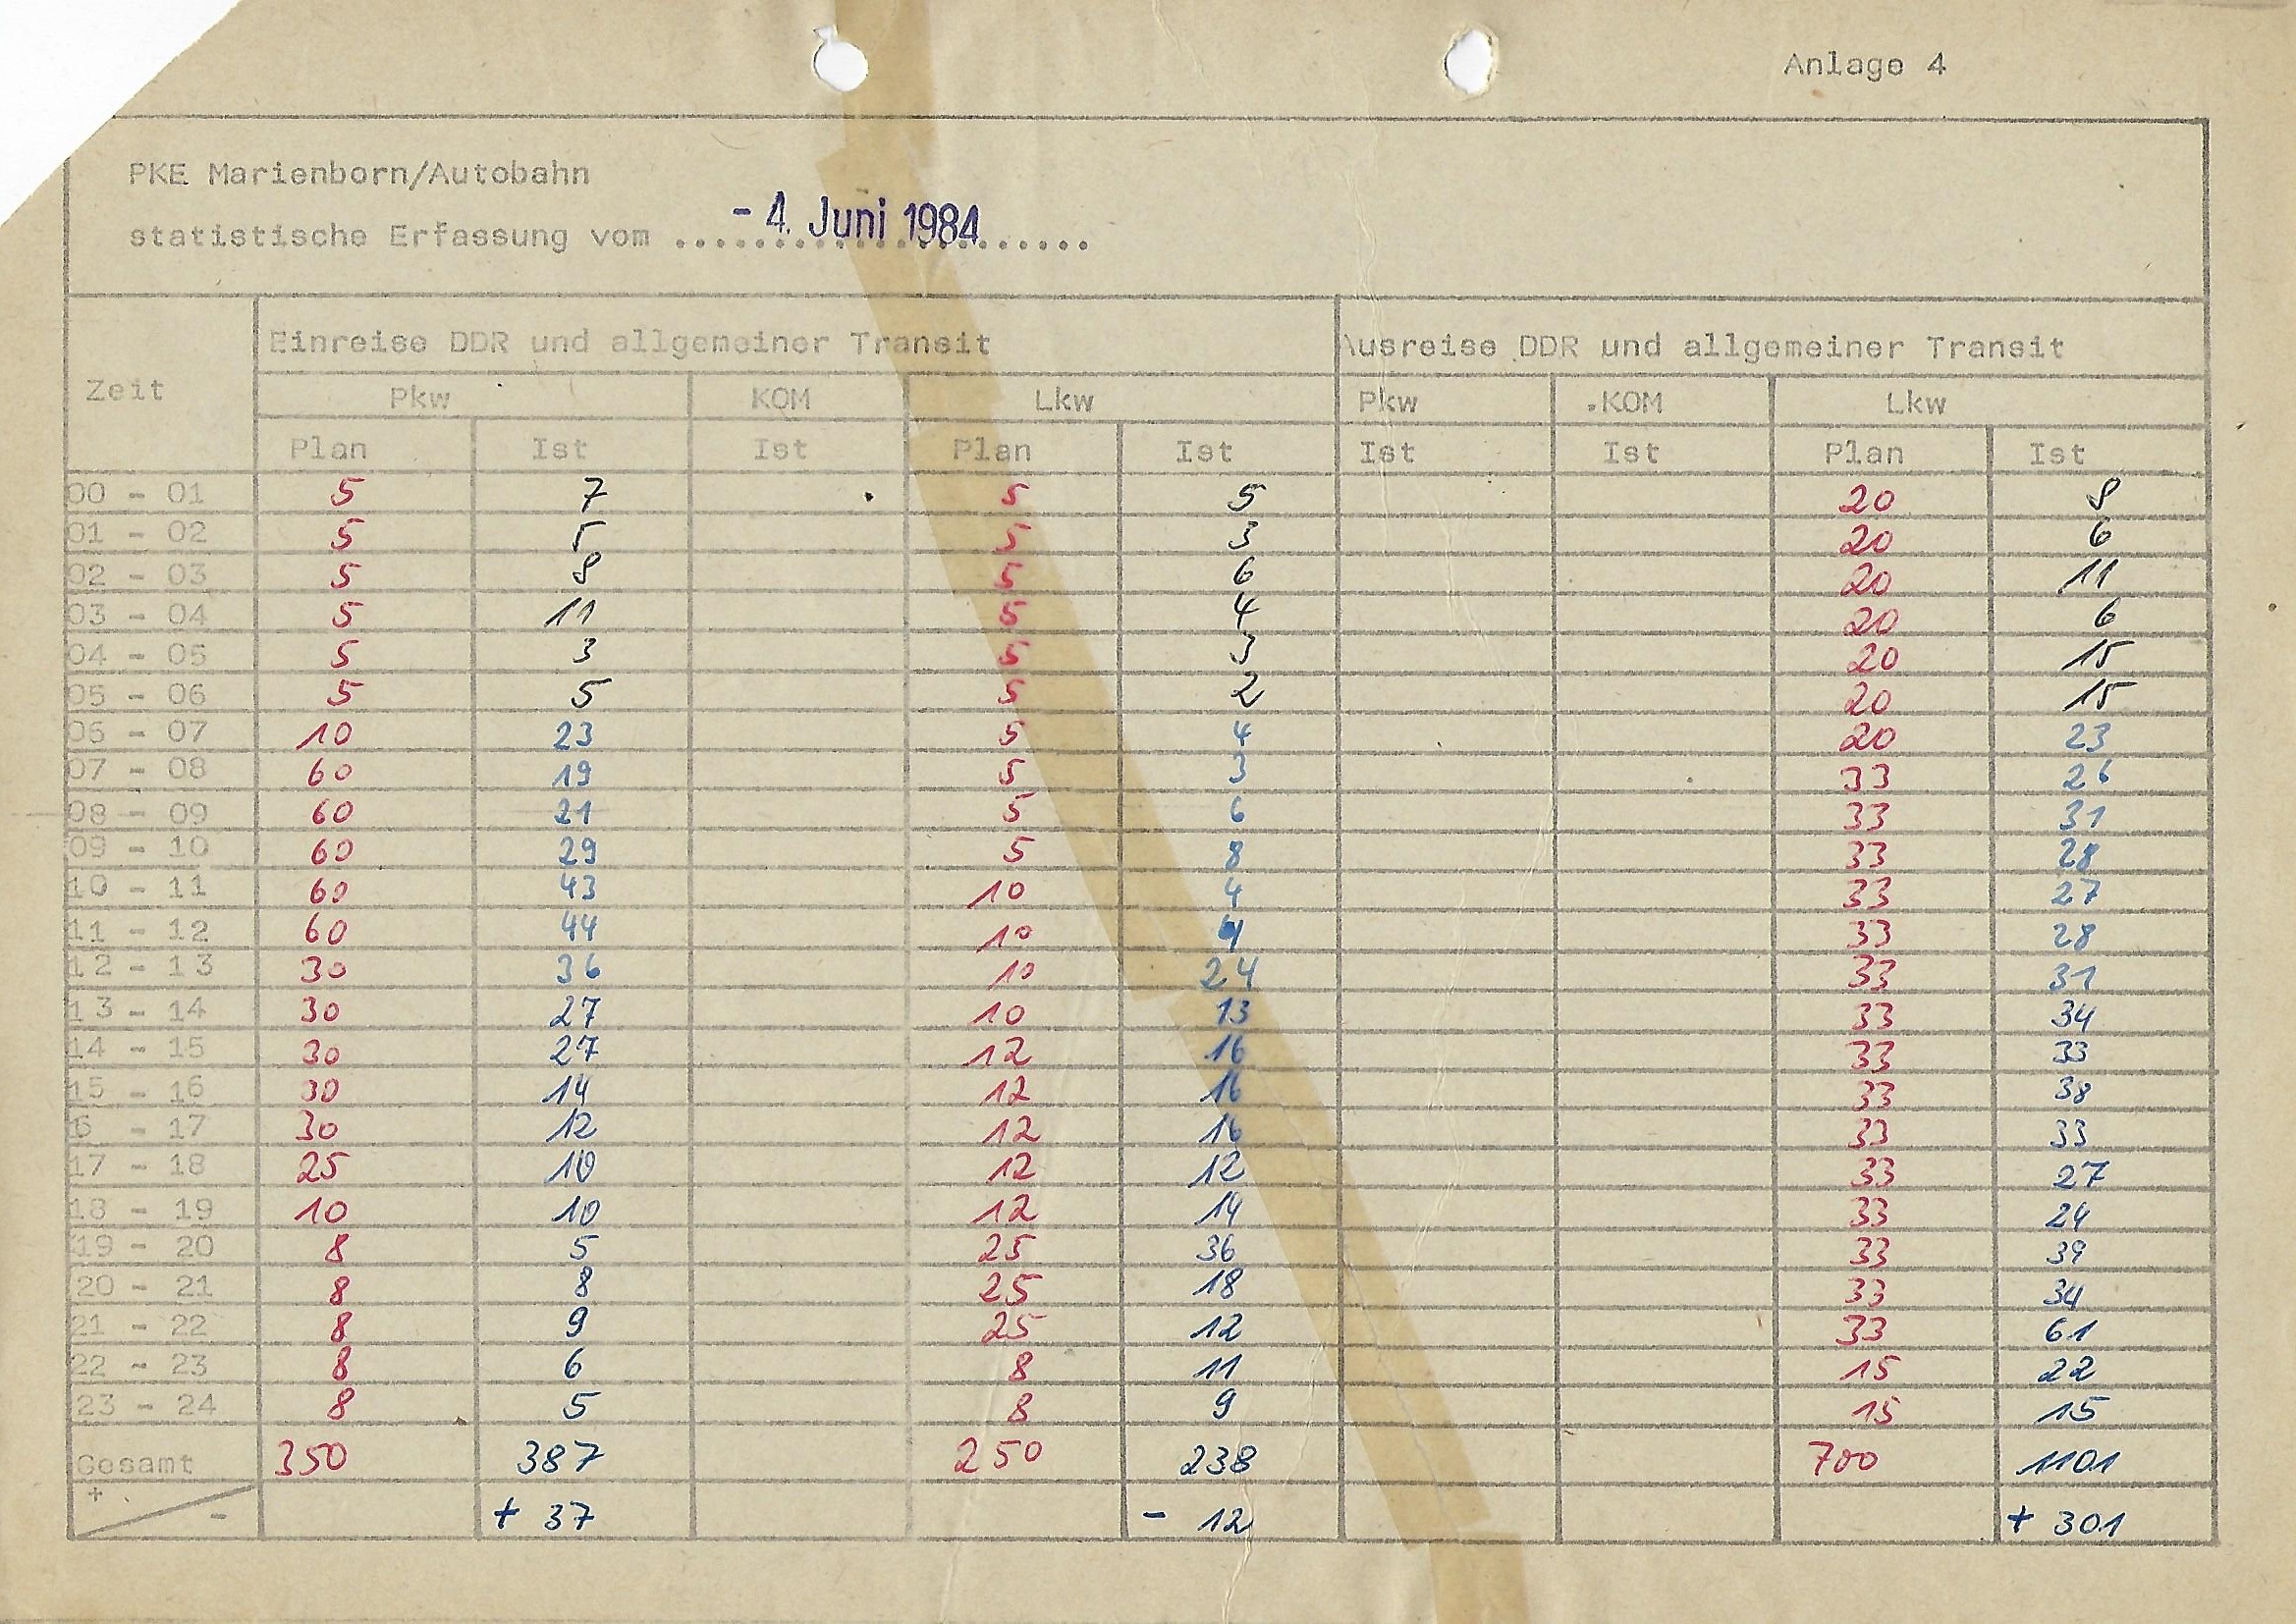 Anlage 4
PKE Marienborn/Autobahn
statistische Erfassung vom ..................... - 4. Juni 1984
Einreise DDR und allgemeiner Transit Ausreise DDR und allgemeiner Transit
Zeit
Pkw KOM Lkw Pkw .KOM Lkw
Plan Ist Ist Plan Ist Ist Ist Plan Ist
00 - 01 5 7 5 5 20 8
01 - 02 5 5 5 3 20 6
02 - 03 5 8 5 6 20 11
03 - 04 5 11 5 4 20 6
04 - 05 5 3 5 3 20 15
05 - 06 5 5 5 2 20 15
06 - 07 10 23 5 4 20 23
07 - 08 60 19 5 3 33 26
08 - 09 60 21 5 6 33 31
09 - 10 60 29 5 8 33 28
10 - 11 60 43 10 4 33 27
11 - 12 60 44 10 33 28
12 - 13 30 36 10 24 33 31
13 - 14 30 27 10 13 33 34
14 - 15 30 27 12 16 33 33
15 - 16 30 14 12 16 33 38
6 - 17 30 12 12 16 33 33
17 - 18 25 10 12 12 33 27
18 - 19 10 10 12 14 33 24
19 - 20 8 5 25 36 33 39
20 - 21 8 8 25 18 33 34
21 - 22 8 9 25 12 33 61
22 - 23 8 6 8 11 15 22
23 - 24 8 5 8 9 15 15
Gesamt 350 387 250 238 700 1101
+ - + 37 - 12 + 301